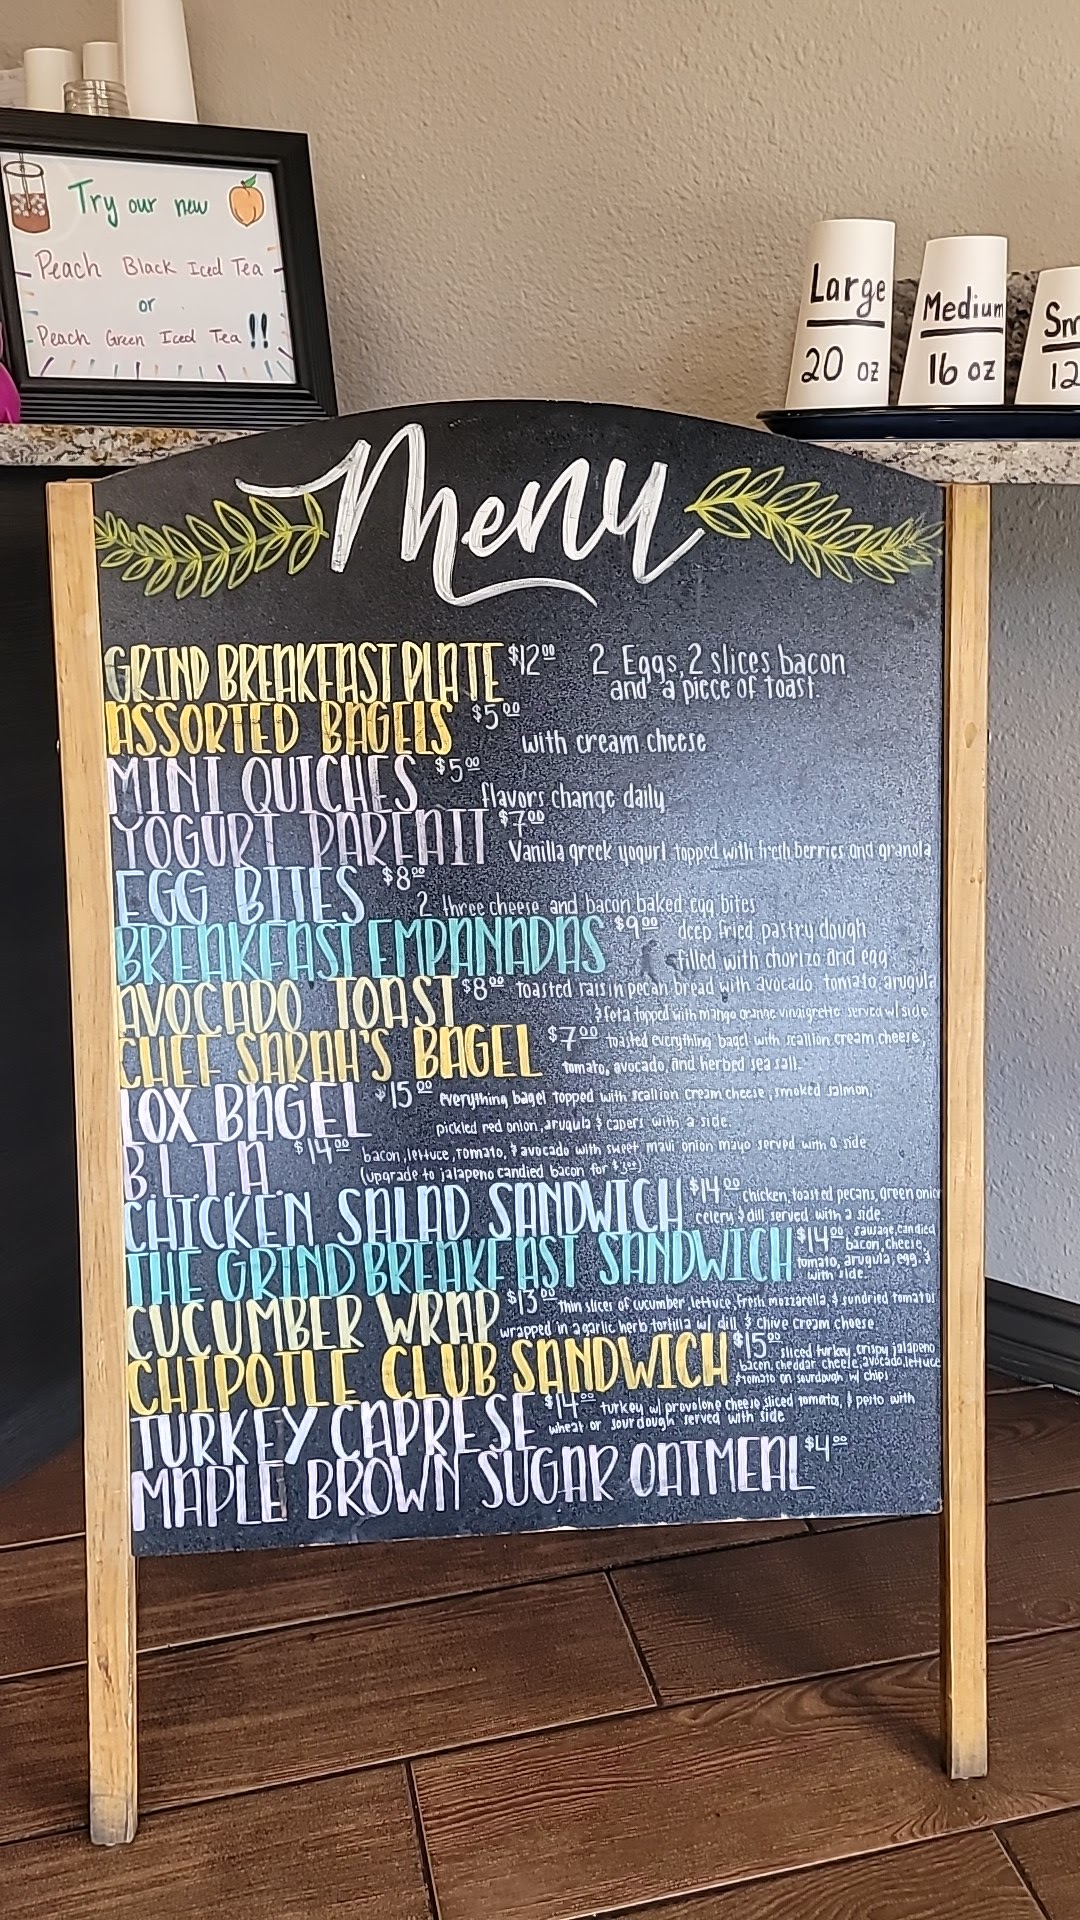 Try our new
Peach Black Iced Tea
or
Peach Green Iced Tea !!
Large
20 oz
Medium
16 oz
Sm
12
Menu
GRIND BREAKFAST PLATE $12.00 2 Eggs, 2 slices bacon
and a piece of toast.
ASSORTED BAGELS $5.00
with cream cheese
MINI QUICHES $5.00
flavors change daily
YOGURT PARFAIT $7.00
Vanilla greek yogurt topped with fresh berries and granola
EGG BITES $8.00
2 three cheese and bacon baked egg bites
BREAKFAST EMPANADAS $9.00 deep fried pastry dough
filled with chorizo and egg
AVOCADO TOAST $8.00 Toasted raisin pecan bread with avocado, tomato, arugula
& feta topped with mango orange vinaigrette served w/ side
CHEF SARAH'S BAGEL $7.00 toasted everything bagel with scallion cream cheese,
tomato, avocado, and herbed sea salt.
LOX BAGEL $15.00 everything bagel topped with scallion cream cheese, smoked salmon,
pickled red onion, arugula & capers with a side.
B.L.T.A. $14.00 bacon, lettuce, tomato, & avocado with sweet maui onion mayo served with a side
(upgrade to jalapeno candied bacon for $3.00)
CHICKEN SALAD SANDWICH $14.00 chicken, toasted pecans, green onion
celery & dill served with a side.
THE GRIND BREAKFAST SANDWICH $14.00 sausage, candied
bacon, cheese,
tomato, arugula, egg, &
with side.
CUCUMBER WRAP $13.00 Thin slices of cucumber, lettuce, fresh mozzarella, & sundried tomatos
wrapped in a garlic herb tortilla w/ dill & chive cream cheese
CHIPOTLE CLUB SANDWICH $15.00 sliced turkey, crispy jalapeno
bacon, cheddar cheese, avocado, lettuce
& tomato on sourdough w/ chips
TURKEY CAPRESE $14.00 turkey w/ provolone cheese, sliced tomatos, & pesto with
wheat or sourdough served with side
MAPLE BROWN SUGAR OATMEAL $4.00